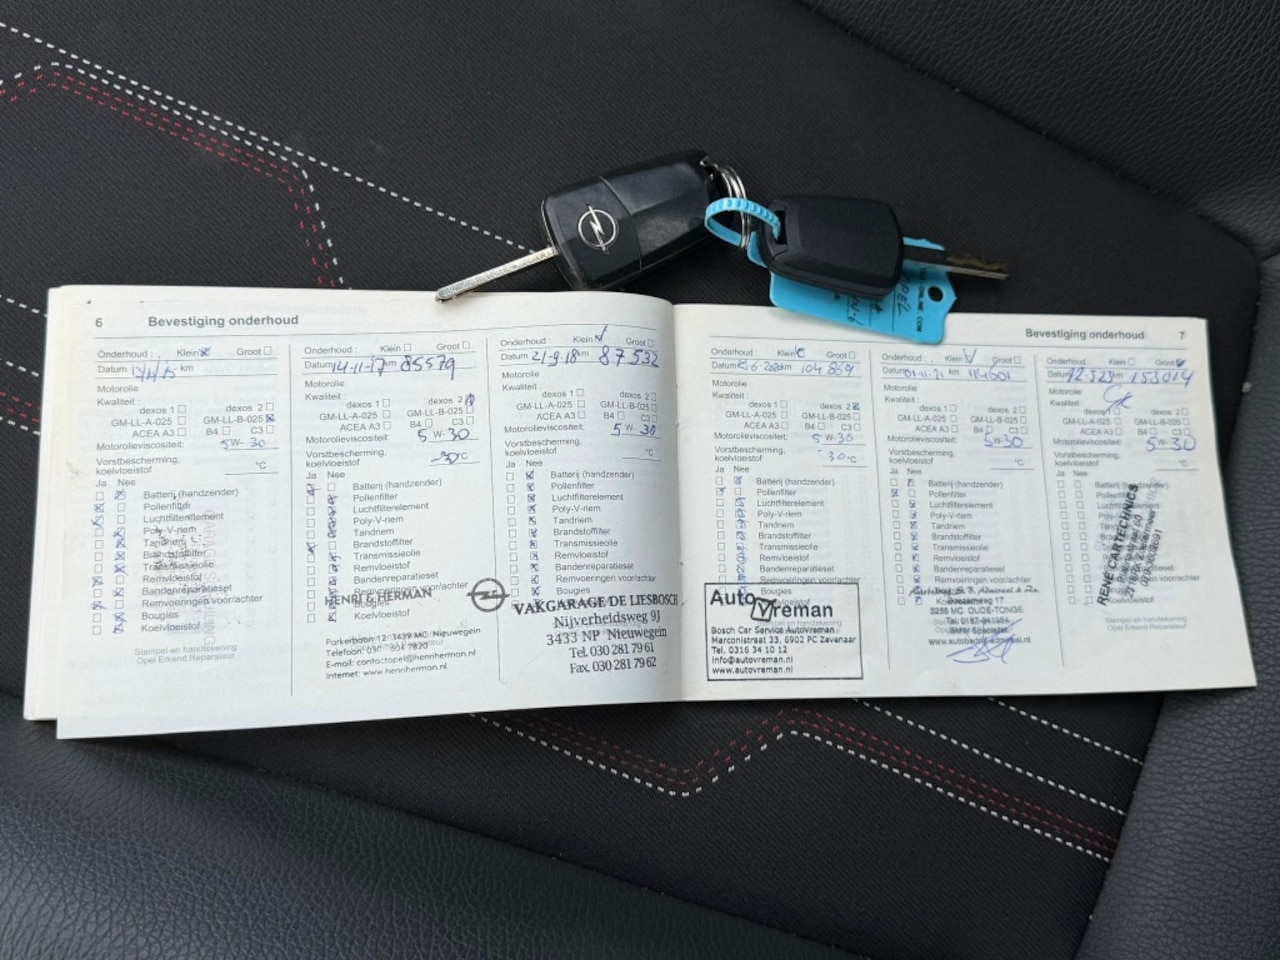 6 Bevestiging onderhoud
Onderhoud : Klein Groot
Datum km
Motorolie
Kwaliteit :
dexos 1 dexos 2
GM-LL-A-025 GM-LL-B-025
ACEA A3 B4 C3
Motorolieviscositeit: 5W-30
Vorstbescherming,
koelvloeistof °C
Ja Nee
Batterij (handzender)
Pollenfilter
Luchtfilterelement
Poly-V-riem
Tandriem
Brandstoffilter
Transmissieolie
Remvloeistof
Bandenreparatieset
Remvoeringen voor/achter
Bougies
Koelvloeistof
Stempel en handtekening
Opel Erkend Reparateur
Onderhoud : Klein Groot
Datum 14-11-'17 km 85579
Motorolie
Kwaliteit :
dexos 1 dexos 2
GM-LL-A-025 GM-LL-B-025
ACEA A3 B4 C3
Motorolieviscositeit: 5W-30
Vorstbescherming,
koelvloeistof -30°C
Ja Nee
Batterij (handzender)
Pollenfilter
Luchtfilterelement
Poly-V-riem
Tandriem
Brandstoffilter
Transmissieolie
Remvloeistof
Bandenreparatieset
Remvoeringen voor/achter
Bougies
HENRI & HERMAN
Koelvloeistof
Parkerbaan 12, 3439 MC Nieuwegein
Telefoon: 604 7820
E-mail: contactopel@henriherman.nl
Internet: www.henriherman.nl
Onderhoud : Klein Groot
Datum 21-9-18 km 87532
Motorolie
Kwaliteit :
dexos 1 dexos 2
GM-LL-A-025 GM-LL-B-025
ACEA A3 B4 C3
Motorolieviscositeit: 5W-30
Vorstbescherming,
koelvloeistof °C
Ja Nee
Batterij (handzender)
Pollenfilter
Luchtfilterelement
Poly-V-riem
Tandriem
Brandstoffilter
Transmissieolie
Remvloeistof
Bandenreparatieset
Remvoeringen voor/achter
Bougies
VAKGARAGE DE LIESBOSCH
Nijverheidsweg 9J
3433 NP Nieuwegein
Tel. 030 281 79 61
Fax. 030 281 79 62
Bevestiging onderhoud 7
Onderhoud : Klein Groot
Datum km 104869
Motorolie
Kwaliteit :
dexos 1 dexos 2
GM-LL-A-025 GM-LL-B-025
ACEA A3 B4 C3
Motorolieviscositeit: 5W-30
Vorstbescherming,
koelvloeistof -30°C
Ja Nee
Batterij (handzender)
Pollenfilter
Luchtfilterelement
Poly-V-riem
Tandriem
Brandstoffilter
Transmissieolie
Remvloeistof
Bandenreparatieset
Remvoeringen voor/achter
Auto Vreman
Bosch Car Service AutoVreman
Marconistraat 33, 6902 PC Zevenaar
Tel. 0316 34 10 12
info@autovreman.nl
www.autovreman.nl
Onderhoud : Klein Groot
Datum 01-11-21 km
Motorolie
Kwaliteit :
dexos 1 dexos 2
GM-LL-A-025 GM-LL-B-025
ACEA A3 B4 C3
Motorolieviscositeit: 5W-30
Vorstbescherming,
koelvloeistof °C
Ja Nee
Batterij (handzender)
Pollenfilter
Luchtfilterelement
Poly-V-riem
Tandriem
Brandstoffilter
Transmissieolie
Remvloeistof
Bandenreparatieset
Remvoeringen voor/achter
3258 MC OUDE-TONGE
Tel. 0187-641954
Onderhoud : Klein Groot
Datum 12.523 km 153014
Motorolie
Kwaliteit :
dexos 1 dexos 2
GM-LL-A-025 GM-LL-B-025
ACEA A3 B4 C3
Motorolieviscositeit: 5W-30
Vorstbescherming,
koelvloeistof °C
Ja Nee
Batterij (handzender)
RENE CARTECHNICS